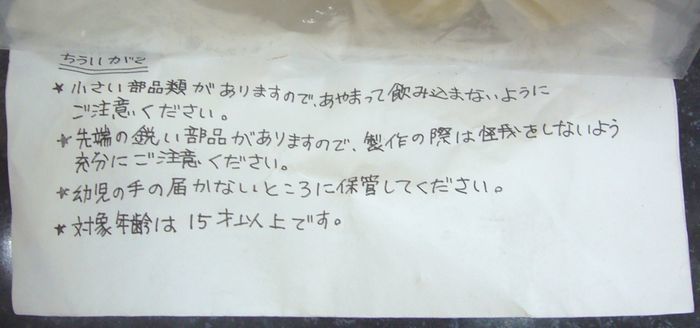 ちういがき
★小さい部品類がありますので、あやまって飲み込まないように
ご注意ください。
★先端の鋭い部品がありますので、製作の際は怪我をしないよう
充分にご注意ください。
★幼児の手の届かないところに保管してください。
★対象年齢は15才以上です。